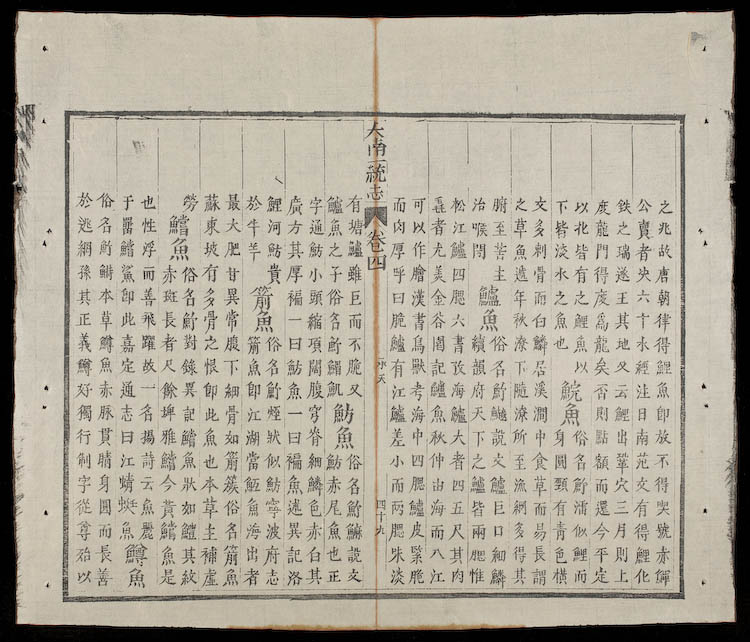 之兆故唐朝律得鯉魚即放不得喫號赤鯶
公賣者决六十水經注日南范文有得鯉化
鉄之瑞遂王其地又云鯉出鞏穴三月則上
度龍門得度爲龍矣否則點額而還今平定
以北皆有之鯉魚以
下皆淡水之魚也
鯇魚
俗名似鯉而
身圓頸有青色橫
文多刺骨而白鱗居溪澗中食草而易長謂
之草魚遞年秋潦下隨潦所至漁網多得其
腑至苦主
治喉閉
鱸魚
俗名說文鱸巨口細鱗
續韻府天下之鱸皆兩腮惟
松江鱸四腮六書攷海鱸大者四五尺其肉
毳者尤美金谷園記鱸魚秋仲出海而入江
可以作膾漢書鳥獸考海中四腮鱸皮緊脆
而肉厚呼曰脆鱸有江鱸差小而兩腮味淡
大南一統志 卷四
四十九
有塘鱸雖巨而不脆又
鱸魚之子俗名
魴魚
俗名說文
魴赤尾魚也正
字通魴小頭縮項闊腹穹脊細鱗色赤白其
廣方其厚褊一曰魴魚一曰褊魚述異記洛
鯉河魴貴
於牛羊
箭魚
俗名狀似魴寧波府志
箭魚即江湖當魱魚海出者
最大肥甘異常腹下細骨如箭簇俗名箭魚
蘇東坡有多骨之恨即此魚也本草主補虛
勞
鱨魚
俗名對錄異記鱨魚狀如鱧其紋
赤斑長者尺餘埤雅鱨今黃鱨魚是
也性浮而善飛躍故一名揚詩云魚麗
于罶鱨鯊即此嘉定通志曰江蜻蜓魚
鱒魚
俗名本草鱒魚赤脉貫睛身圓而長善
於逃網孫其正義鱒好獨行制字從尊殆以